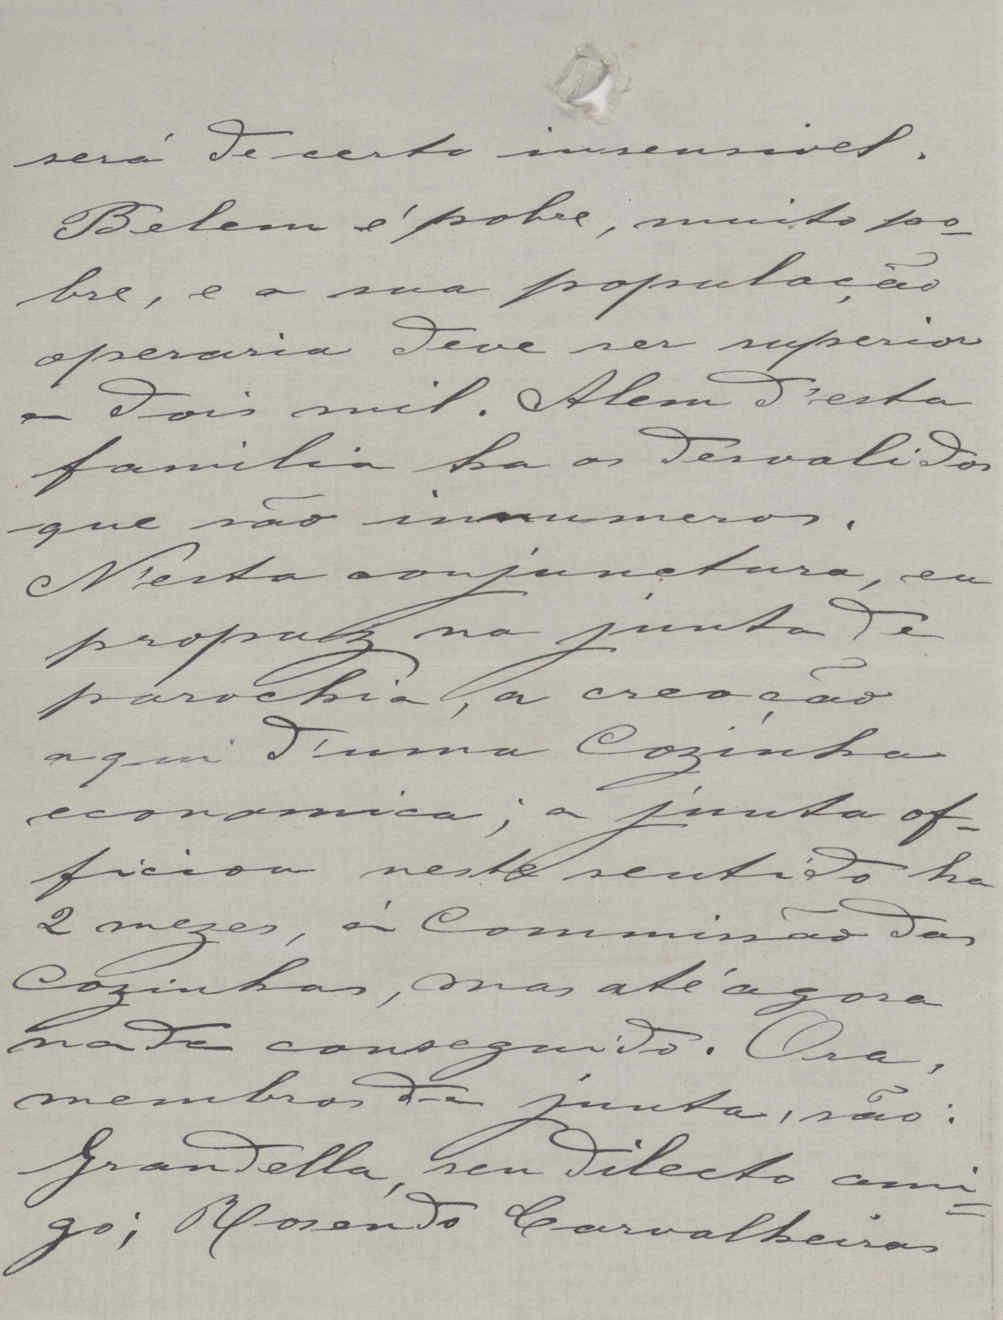 será de certo insensivel.
Belem é pobre, muito po-
bre, e a sua população
operaria deve ser superior
a dois mil. Alem d'esta
familia ha os desvalidos
que são innumeros.
N'esta conjunctura, eu
propuz na junta de
parochia, a creação
aqui d'uma Cozinha
economica; a junta of-
ficiou neste sentido ha
2 mezes, á Commissão das
Cozinhas, mas até agora
nada conseguido. Ora,
membros da junta, são:
Grandella, seu dilecto ami-
go; Rosendo Carvalheiras